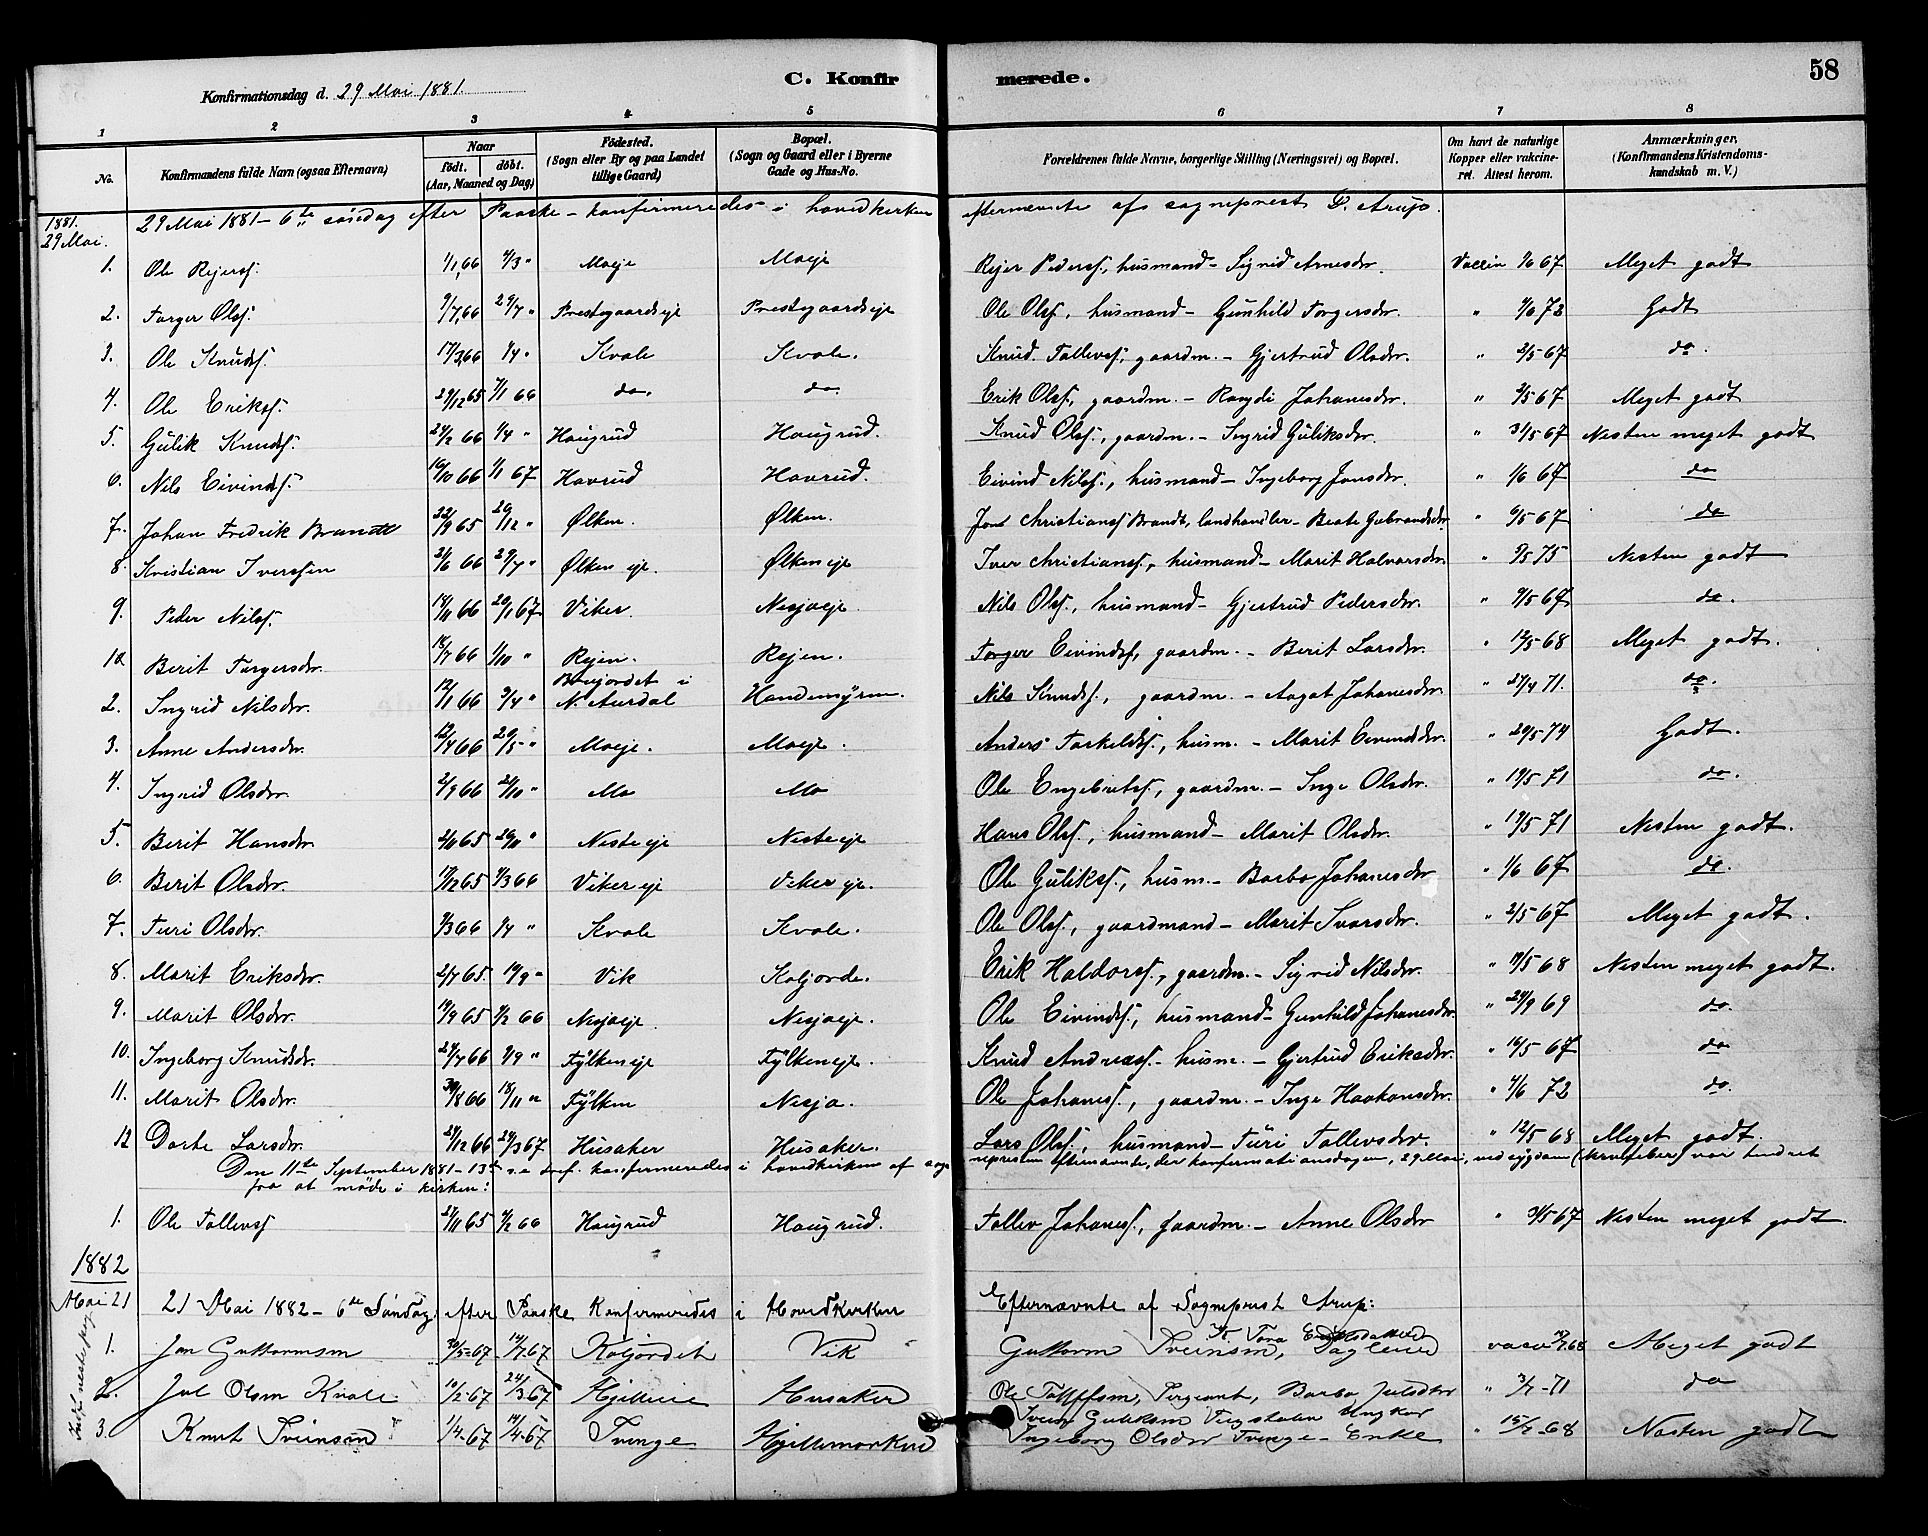 58
C. Konfirmerede.
Konfirmationsdag d. 29 Mai 1881.
1 2 3 4 5 6 7 8
No. Konfirmandens fulde Navn (ogsaa Efternavn) Naar født. døbt. (Aar, Maaned og Dag) Födested. (Sogn eller By og paa Landet tillige Gaard) Bopæl. (Sogn og Gaard eller i Byerne Gade og Hus-No. Forældrenes fulde Navne, borgerlige Stilling (Næringsvei) og Bopæl. Om havt de naturlige Kopper eller vakcineret. Attest herom. Anmærkninger, (Konfirmandens Kristendomskundskab m. V.)
1881. 29 Mai. 29 Mai 1881 - 6te söndag efter Paaske - konfirmeredes i hovedkirken efternævnte af sogneprest Arup.
1. Ole Rejerss. 1/1,66 Moeje Moeje Rejer Pederss., husmand - Sigrid Arnesdr. Vaccin 1/6 67 Meget godt
2. Torger Olss. 9/7,66 29/7 " Prestegaardseje Prestegaardseje Ole Olss., husmand - Gunhild Torgersdr. " 4/6 72 Godt
3. Ole Knudss. 17/3,66 1/4 " Kvale Kvale. Knud Tollevss., gaardm. - Gjertrud Olsdr. " 2/5 67 do.
4. Ole Erikss. 29/12 65 7/1 66 do. do. Erik Olss., gaardm. - Rangdi Johanesdr. " 2/5 67 Meget godt
5. Gulik Knudss. 24/2 66 1/4 " Haugrud Haugrud. Knud Olss., gaardm. - Ingrid Guliksdr. " 31/5 67 Nesten meget godt
6. Nils Eivindss. 10/10 66 1/1 67 Havrud Havrud. Eivind Nilss., husmand - Ingeborg Jonsdr. " 1/6 67 do
7. Johan Fredrik Brandt 22/9 65 /12 " Ølken. Ølken. Christianss. Brandt, landhandler - Beate Gubrandsdr. " 9/5 67 do
8. Kristian Iverssen 2/6 66 29/7 " Ølken eje. Ølken eje Iver Christianss., husmand - Marit Halvorsdr. " 5/5 75 Nesten godt
9. Peder Nilss. 14/11 66 20/1 67 Viker. Nesjaeje. Nils Olss., husmand - Gjertrud Pedersdr. " 9/5 67 do.
10 Berit Torgersdr. 18/7 66 1/10 " Rejen. Rejen. Torger Eivindss., gaardm. - Berit Larsdr. " 12/5 68 Meget godt.
2. Ingrid Nilsdr. 12/1 66 3/4 " i N. Aurdal Handemyren. Nils Knudss., gaardm. - Aagot Johanesdr. " 27/4 71. do.
3. Anne Andersdr. 12/4 66 20/5 " Moeje. Moeje. Anders Torkeldss., husm. - Marit Eivindsdr. " 20/5 74 Godt.
4. Ingrid Olsdr. 2/9 66 21/10 " Mo Mo Ole Engebretss., gaardm. - Inge Olsdr. " 19/5 71 do.
5. Berit Hansdr. 65 " Nesteeje Nesteeje Hans Olss., husmand - Marit Olsdr. " 19/5 71 Nesten godt.
6. Berit Olsdr. 17/12 65 4/3 66 Vikereje Vikereje. Ole Gulikss., husm. - Barbo Johanesdr " 1/6 67 do.
7. Turi Olsdr. 9/3 66 1/4 " Kvale Kvale. Ole Olss., gaardmand - Marit Ivarsdr. " 2/5 67 Meget godt.
8. Marit Eriksdr. 2/7 65 10/9 " Vik Koljorde. Erik Haldorss., gaardm. - Sigrid Nilsdr. " 11/5 68 Nesten meget godt.
9. Marit Olsdr. 19/9 65 4/2 66 Nesjaeje. Nesjaeje. Ole Eivindss., husmand - Gunhild Johanesdr. " 24/9 69 do.
10. Ingeborg Knudsdr. 27/7 66 9/9 " Fylkeneje Fylkeneje. Knud Andreass. husm. - Gjertrud Eriksdr. " 16/5 67 do
11. Marit Olsdr. 30/8 66 18/11 " Fylken Nesja. Ole Johaness., gaardm. - Inge Haakonsdr. " 4/6 72 do.
12 Dorte Larsdr. 24/12 66 24/3 67 Husaker Husaker. Lars Olss., husmand - Turi Tollevsdr. " 12/5 68 Meget godt.
Den 11te September 1881 - 13de s. e. tref. konfirmeredes i hovedkirken af sognepresten efternævnte, der konfirmationsdagen, 29 Mai, ved sygdom (skrulfeber) var hindret
fra at möde i kirken:
1. Ole Tollevss 21/11 65 4/2 66 Haugrud Haugrud. Tollev Johaness., gaardm. - Anne Olsdr " 31/5 67 Nesten meget godt.
1882
Mai 21 21 Mai 1882 - 6te Søndag efter Paaske Konfirmeredes i Hovedkirken Efternævnte af Sogneprest Arup:
1. Jon Guttormsen 30/5-67 14/7 67 Koljordet Vik Guttorm Sveinsen, Tora Eriksdatter vacc 68 Meget godt
2. Jul Olsen Kvale 10/2-67 24/3 67 Hjelleeie Husaker Ole Tollefsen, Sergeant, Barbo Julsdtr " 3/7-71 do
3. Knut Sveinsen 1/4-67 14/4-67 Tvenge Hjellemarken Svein Guliksen Ungkar Ingeborg Olsdtr Tvenge - Enke " 15/7-68 Nesten godt